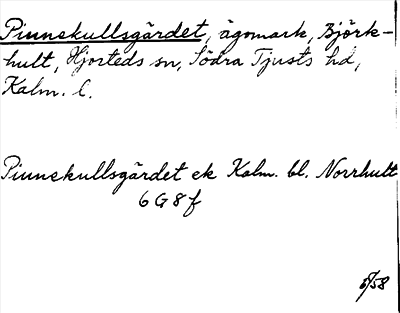 Pinnekullsgärdet, ägomark, Björk-
hult, Hjorteds sn, Södra Tjusts hd,
Kalm. l.
Pinnekullsgärdet ek Kalm. bl. Norrhult
6G8f
5/58